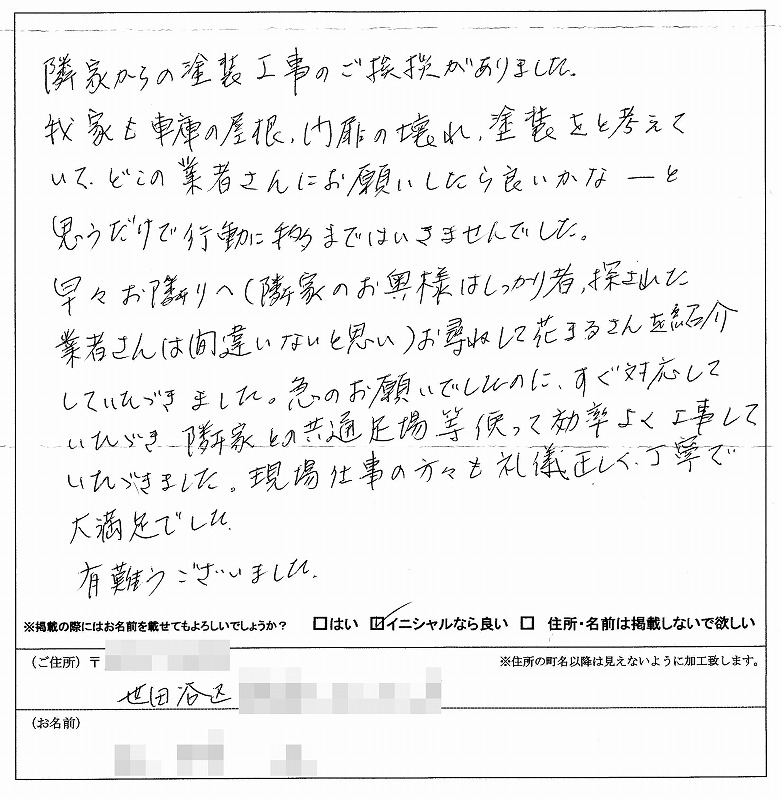 隣家からの塗装工事のご挨拶がありました。
我家も車庫の屋根、門扉の壊れ、塗装をと考えて
いて、どこの業者さんにお願いしたら良いかなーと
思うだけで行動に移すまではいきませんでした。
早々お隣りへ(隣家のお奥様はしっかり者、探された
業者さんは間違いないと思い)お尋ねして花まるさんを紹介
していただきました。急のお願いでしたのに、すぐ対応して
いただき 隣家との共通足場等使って効率よく工事して
いただきました。現場仕事の方々も礼儀正しく、丁寧で
大満足でした。
有難うございました。
※掲載の際にはお名前を載せてもよろしいでしょうか? □はい ☑イニシャルなら良い □ 住所・名前は掲載しないで欲しい
(ご住所)〒 ※住所の町名以降は見えないように加工致します。
世田谷区
(お名前)